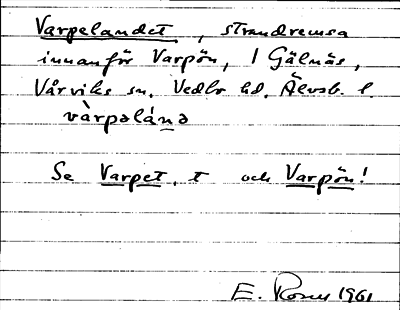 Varpelandet, strandremsa
innanför Varpön, 1 Gälnäs,
Vårviks sn. Vedbo hd. Älvsb. l.
vàrpəlánə
Se Varpet, t och Varpön!
E. Rosell 1961